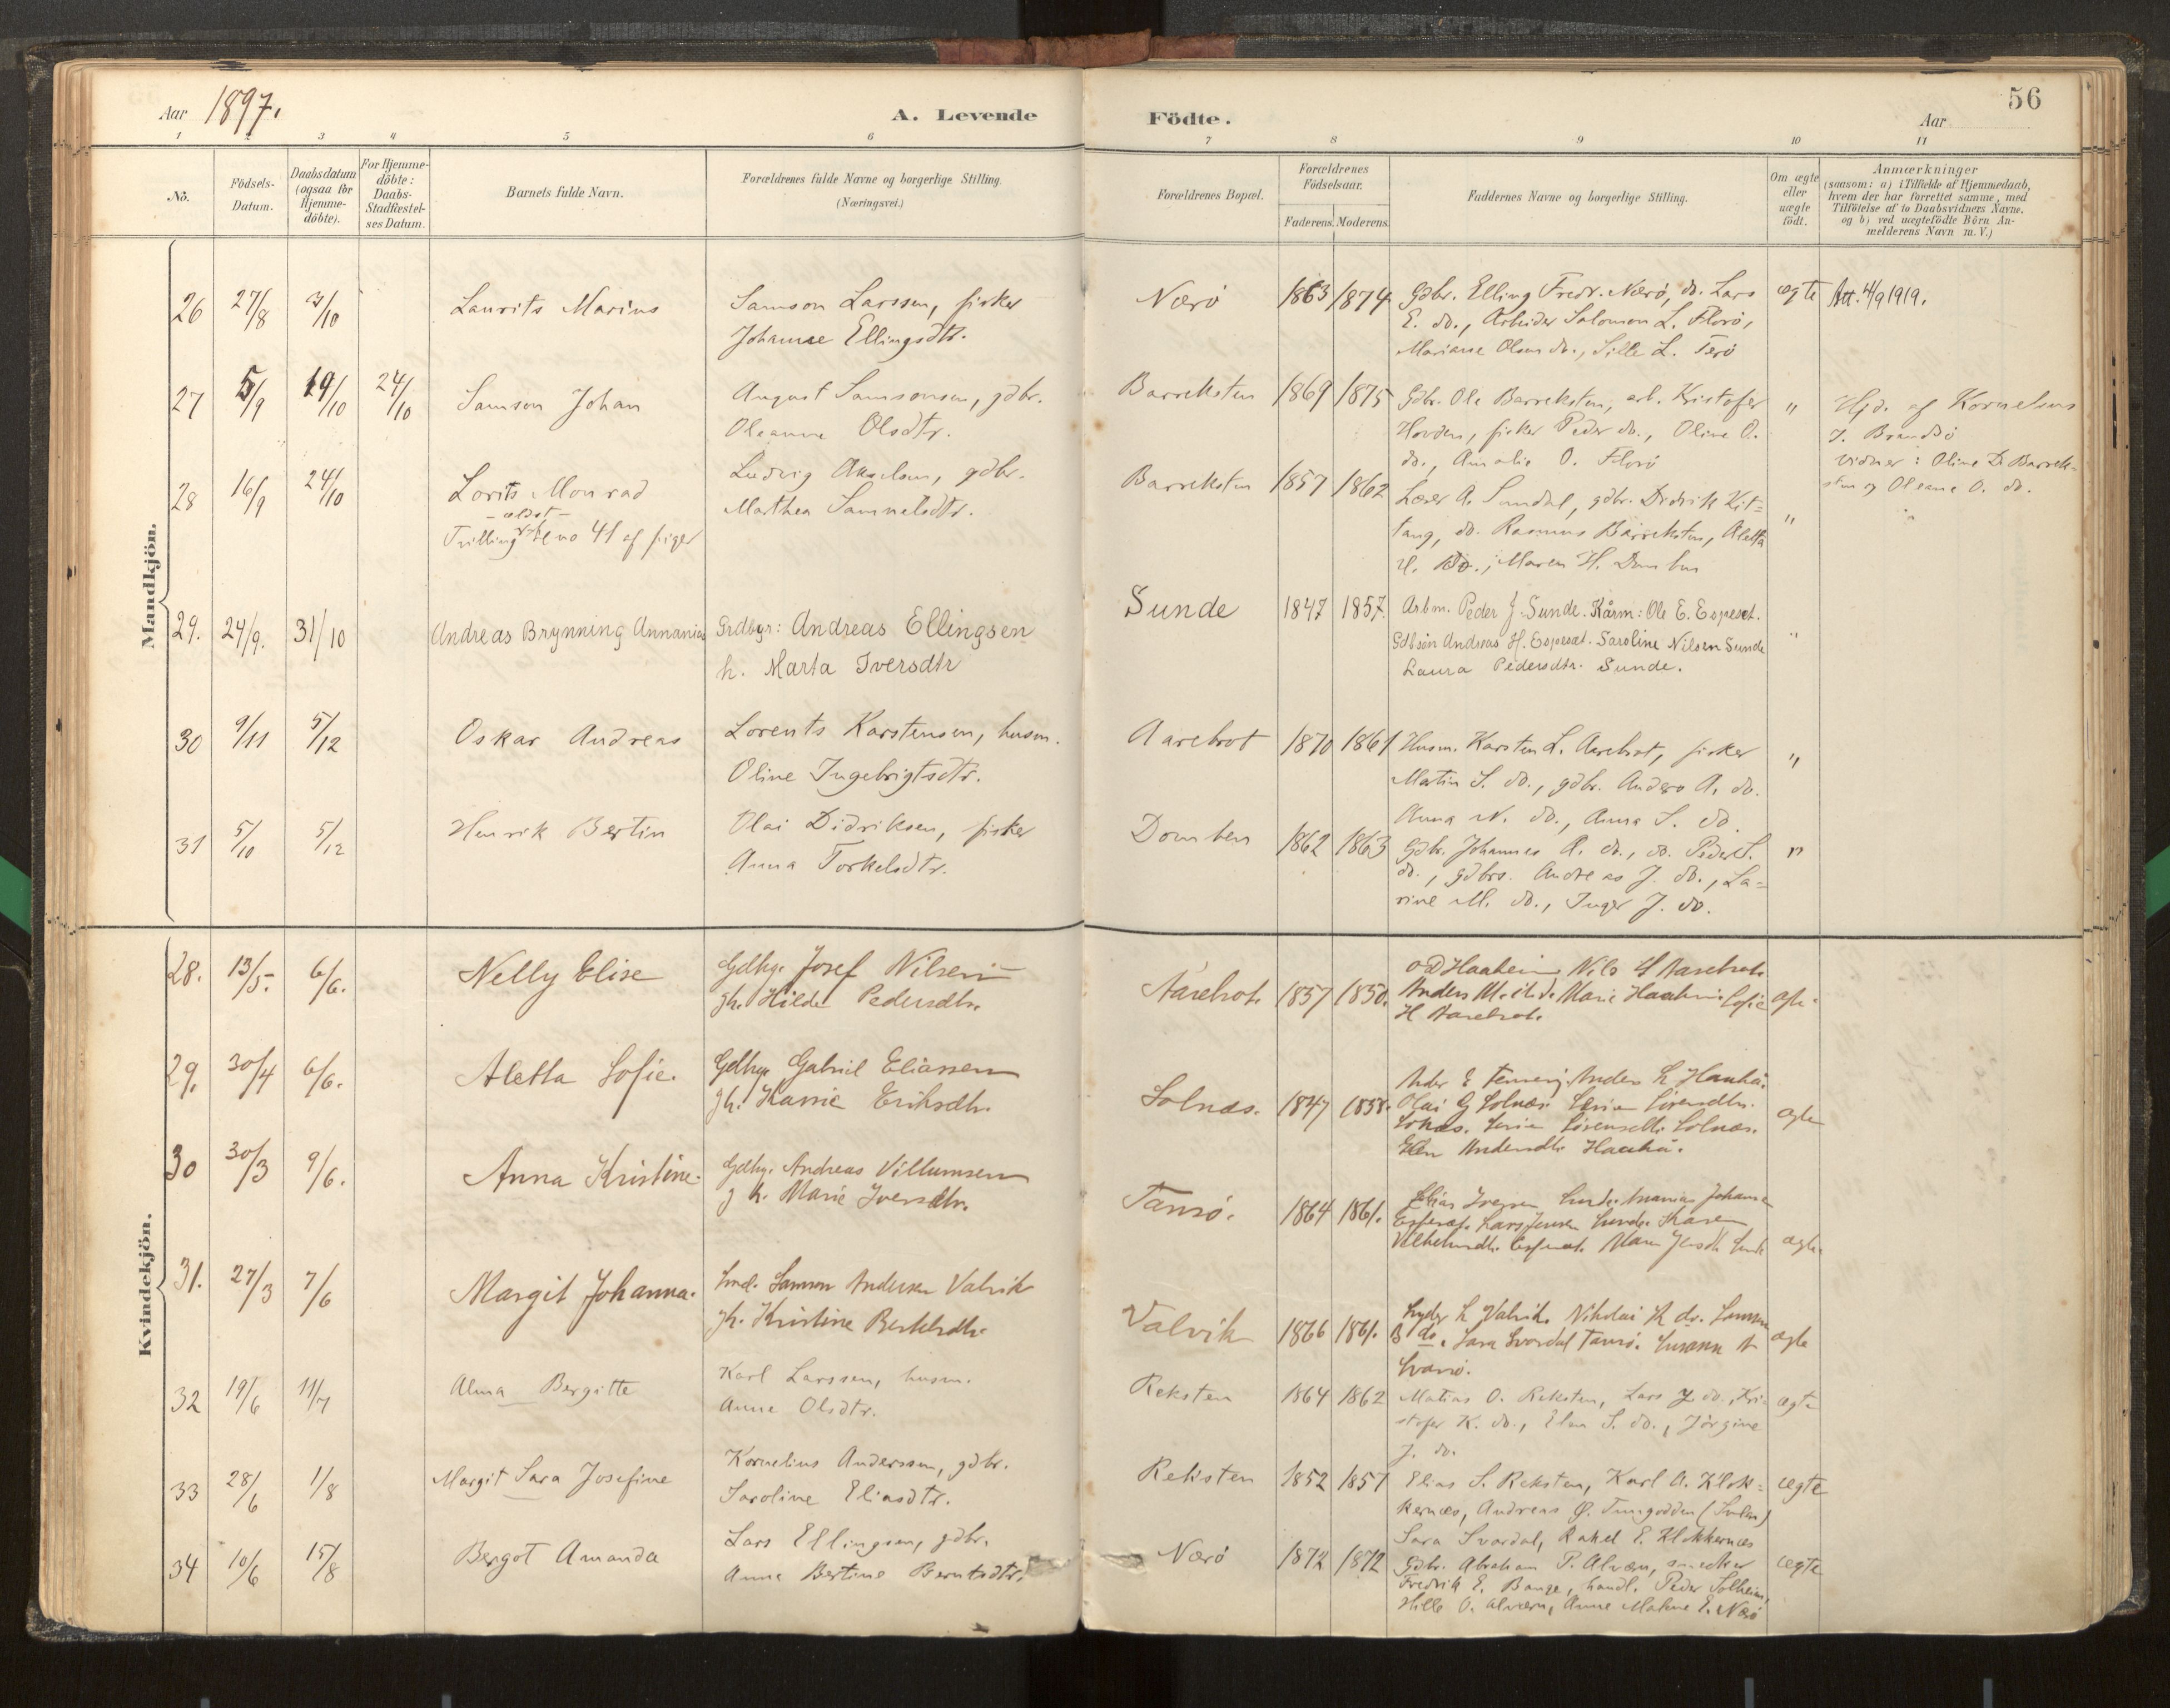 56
Aar 1897.
A. Levende Födte.
Aar
1 2 3 4 5 6 7 8 9 10 11
No.
Födsels-Datum.
Daabsdatum (ogsaa for Hjemme-döbte).
For Hjemme-döbte: Daabs-Stadfæstel-ses Datum.
Barnets fulde Navn.
Forældrenes fulde Navne og borgerlige Stilling.
(Næringsvei.)
Forældrenes Bopæl.
Forældrenes Födselsaar.
Faderens. Moderens.
Faddernes Navne og borgerlige Stilling.
Om ægte eller uægte födt.
Anmærkninger
(saasom: a) i Tilfælde af Hjemmedaab,
hvem der har forrettet samme, med
Tilföielse af to Daabsvidners Navne,
og b) ved uægtefödte Börn An-
melderens Navn m. V.)
Mandkjön.
26 27/8 3/10 Laurits Marius Samson Larssen, fisker Nærö 1863 1874 Gdbr. Elling Fredr. Nærö, do. Lars ægte Att. 4/9 1919.
Johanne Ellingsdtr. E. do., Arbeider Salomon L. Florö,
Mariane Olsen do., Sille L. Terö
27 5/9 19/10 24/10 Samson Johan August Samsonsen, gdbr. Barreksten 1869 1875 Gdbr. Ole Barreksten, arb. Kristofer " Hjd. af Kornelius
Oleanne Olsdtr. Hovden, fisker Peder do., Oline O. J. Brandsö
do., Amalie O. Florö Vidner: Oline D. Barrek-
sten og Oleane O. do.
28 16/9 24/10 Lorits Monrad Ludvig Akselsen, gdbr. Barreksten 1857 1862 Lærer A. Sundal, gdbr. Didrik Kit- "
- ældst - Marthea Samuelsdtr. tang, do. Rasmus Barreksten, Aletta
Tvilling no 41 af piger H. do., Maren H. Domben
29. 24/9. 31/10 Andreas Brynning Annanias Grdbgr: Andreas Ellingsen Sunde 1847 1857. Arbm. Peder J. Sunde. Kårm: Ole E. Espeset. "
h. Marta Iversdtr Gdbsön Andreas H. Espeset. Saroline Nilsen Sunde
Laura Pedersdtr. Sunde.
30 9/11 5/12 Oskar Andreas Lorents Karstensen, husm. Aarebrot 1870 1861 Husm. Karsten L. Aarebrot, fisker "
Oline Ingebrigtsdtr. Martin S. do., gdbr. Anders A. do.
Anna N. do., Anna S. do.
31 5/10 5/12 Henrik Bertin Olai Didriksen, fisker Domben 1862 1863 Gdbr. Johannes A. do., do. Peder S. "
Anna Torkelsdtr. do., gdbrs. Andreas J. do., La-
rine M. do., Inger J. do.
Kvindekjön.
28. 13/5. 6/6. Nelly Elise Gdbgr. Josef Nilsen Aarebrot. 1857 1850. O D Haaheim Nils H Aarebrot. ægte
gh. Hilde Pedersdtr. Anders M. Marie Haaheim Sofie
H Aarebrot.
29. 30/4 6/6. Aletta Sofie. Gdbgr. Gabriel Eliassen Solnæs. 1847 1858. Anders L Haukå. ægte
gh. Karrie Eriksdtr. Olai G Solnæs. Sörensdtr.
Solnæs. Sörensdtr. Solnæs.
Andersdtr. Haukå.
30 30/3 9/6. Anna Kristine. Gdbgr. Andreas Villumsen Tansö. 1864 1861. Elias Iversen Sunde. Ananias Johansen ægte
gh. Marie Iversdtr. Espeset. Lars Jensen Sunde. Karen
Espeset.
31. 27/3 7/6 Margit Johanna. Samson Andersen Valvik Valvik 1866 1861. Lyder L Valvik. Nikolai K do. Samson ægte
gh. Kristine Bertelsdtr. B do. Sara Svardal Tansö. Susanna A
Svanö.
32 19/6 11/7 Alma Bergitte Karl Larssen, husm. Reksten 1864 1862 Matias O. Reksten, Lars J. do., Kri- ægte
Anne Olsdtr. stofer K. do., Elen S. do., Jörgine
J. do.
33 28/6 1/8 Margit Sara Josefine Kornelius Anderssen, gdbr. Reksten 1852 1857 Elias S. Reksten, Karl A. Klok- ægte
Saroline Eliasdtr. kernæs, Andreas Ø. Tungodden (Sulen)
Sara Svardal, Rakel E. Klokkernæs
34 10/6 15/8 Bergot Amanda Lars Ellingsen, gdbr. Nærö 1872 1872 Gdbr. Abraham P. Alværn, snedker ægte
Anne Bertine Berntsdtr. Fredrik E. Bauge, handl. Peder Solheim,
Hille O. Alværn, Anne Malene E. Nærö